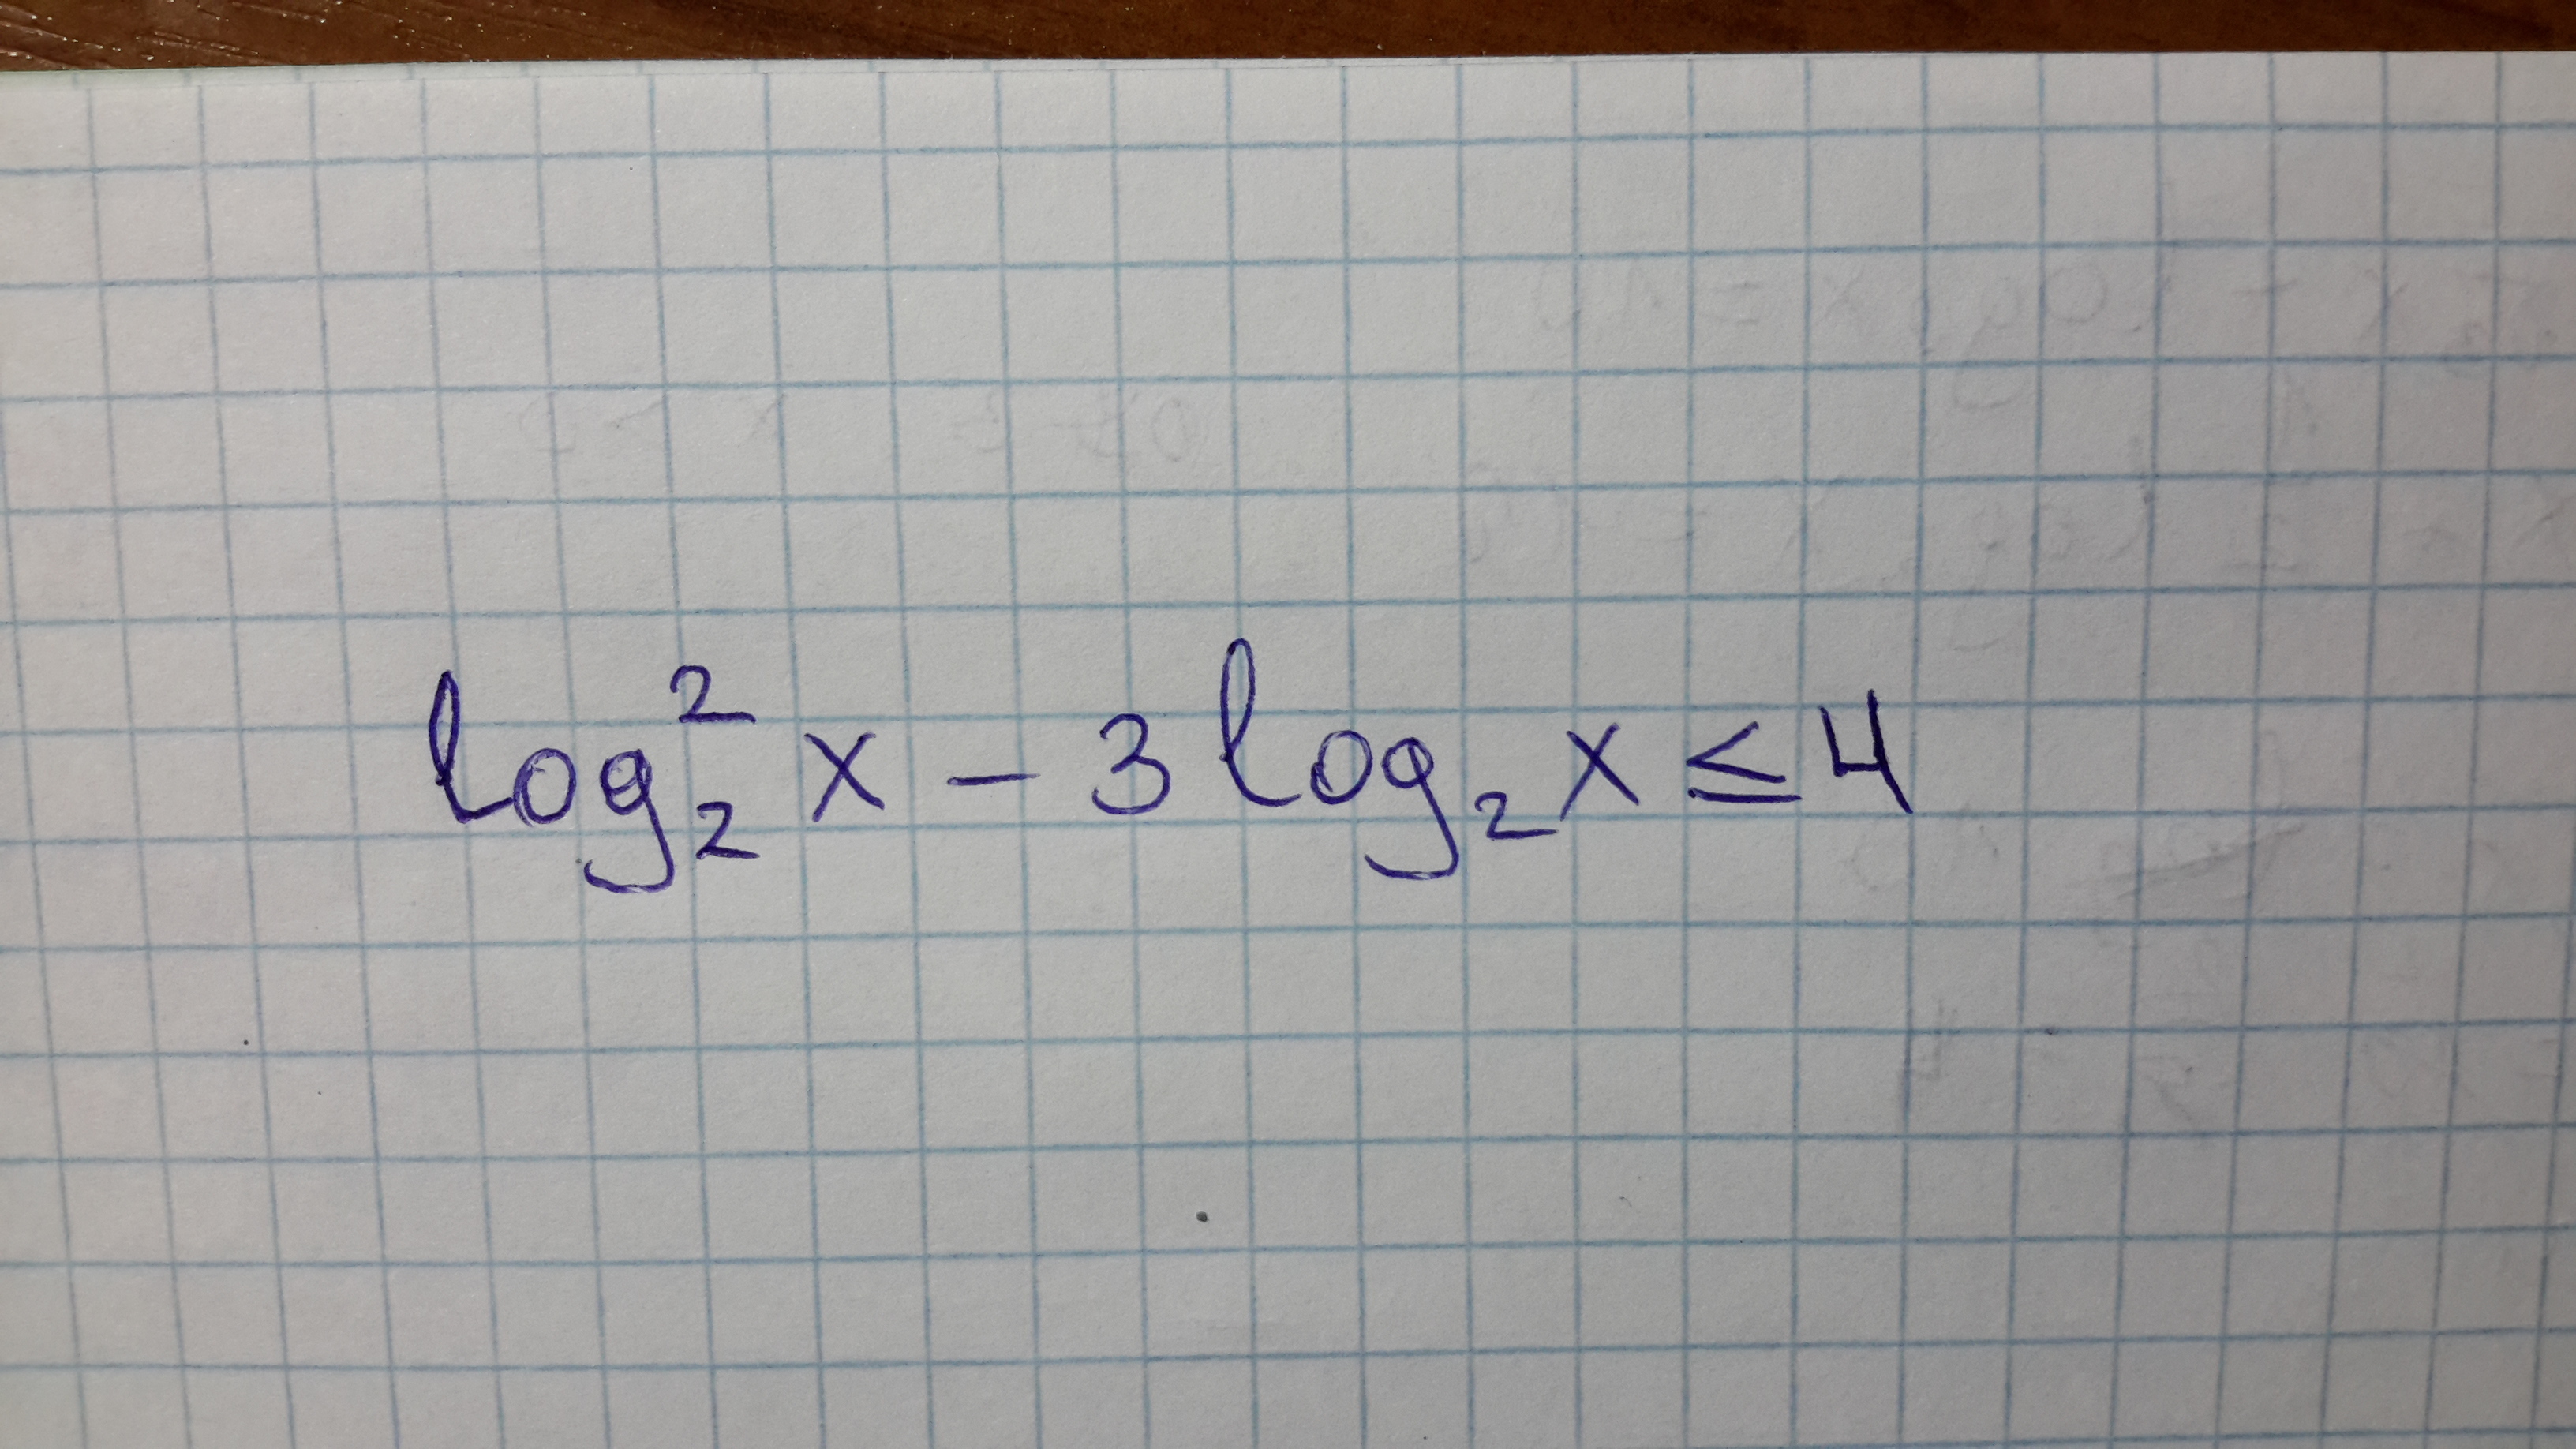 log₂² x - 3 log₂ x ≤ 4